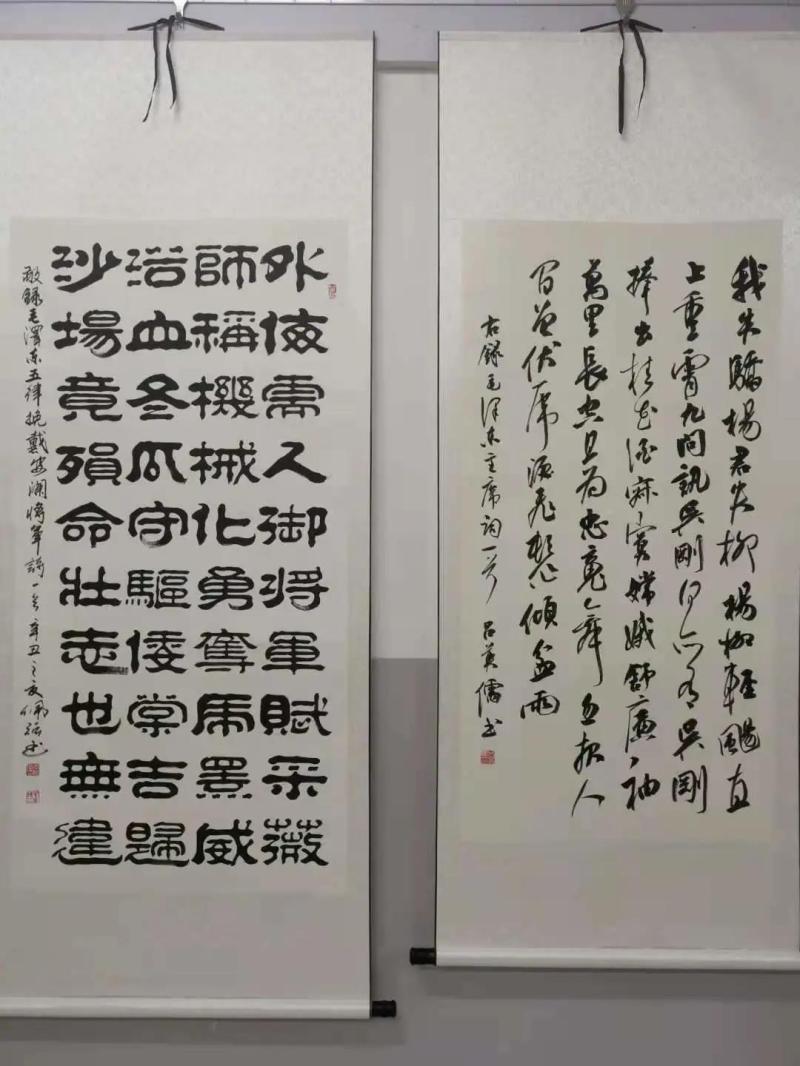 外侮需人御將軍賦采薇
師稱機械化勇奪虎羆威
浴血冬瓜守驅倭棠吉歸
沙場竟殞命壯志也無違
敬録毛澤东五律挽戴安瀾將軍詩一首辛丑之夏佩
我失驕楊君失柳楊柳輕颺直
上重霄九問訊吳剛何所有吳剛
捧出桂花酒寂寞嫦娥舒廣袖
萬里長空且为忠魂舞忽报人
间曾伏虎淚飛顿作傾盆雨
右録毛泽东主席词一首 吕英儒书